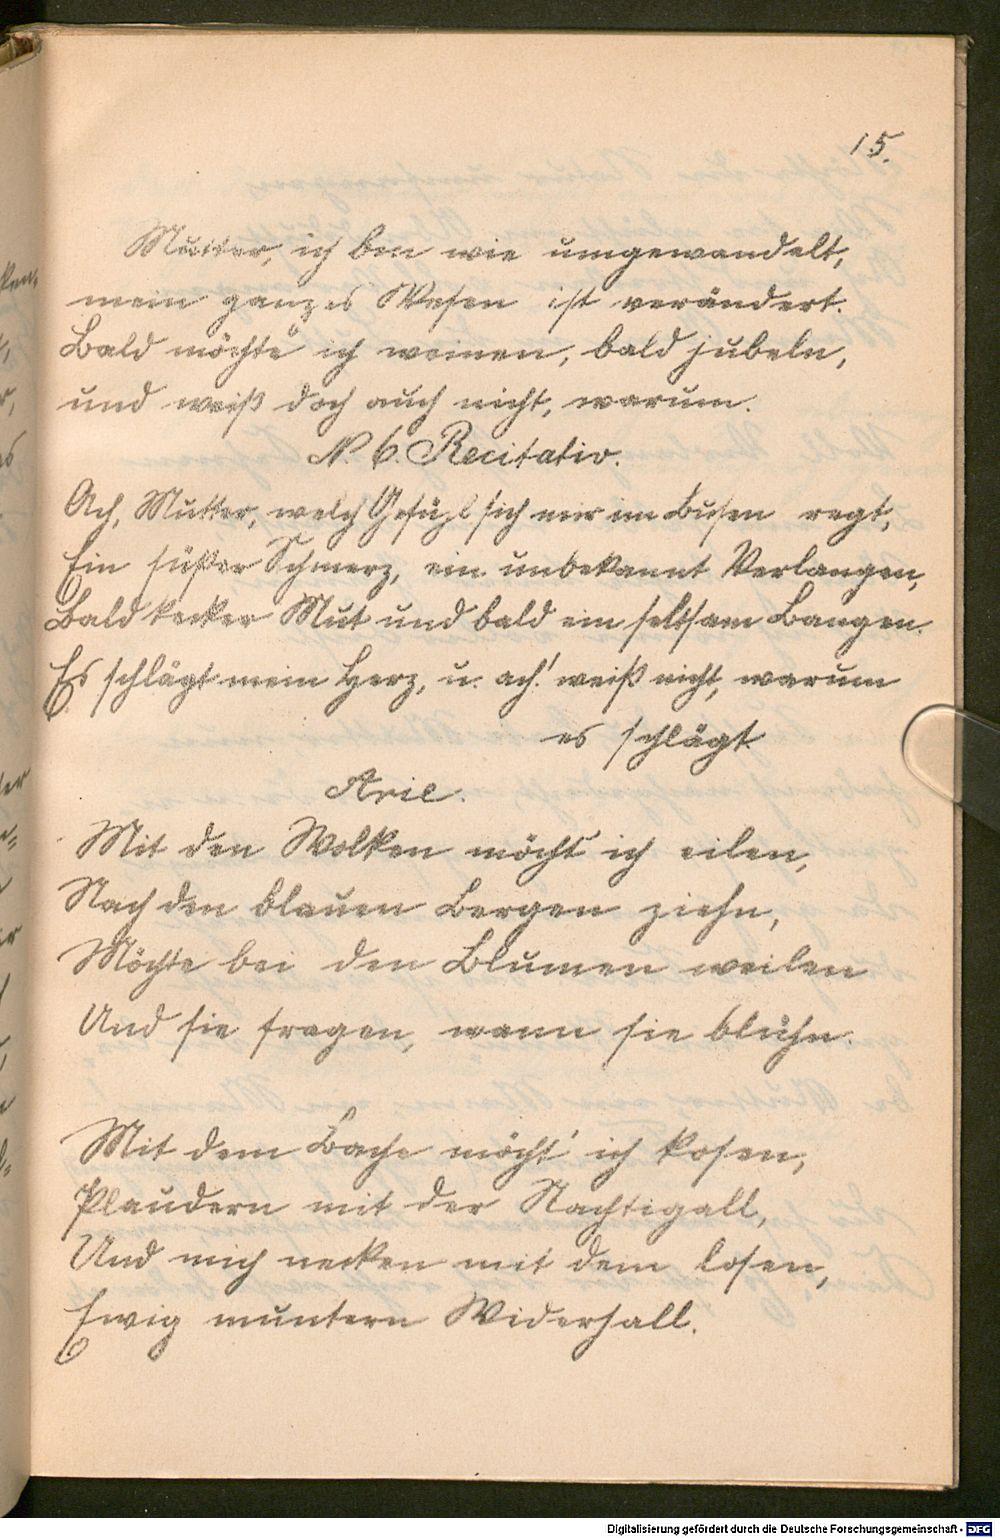 15.
Mutter, ich bin wie umgewandelt,
mein ganzes Wesen ist verändert.
Bald möchte ich weinen, bald jubeln,
und weiß doch auch nicht, warum.
N. 6. Recitativ.
Ach, Mutter, welch Gefühl sich mir im Busen regt,
Ein süßer Schmerz, ein unbekannt Verlangen,
Bald kecker Mut und bald ein seltsam Bangen.
Es schlägt mein Herz, u. ach! weiß nicht, warum
es schlägt
Arie.
Mit den Wolken möcht' ich eilen,
Nach den blauen Bergen ziehn,
Möchte bei den Blumen weilen
Und sie fragen, wann sie blühn.
Mit dem Bache möcht' ich kosen,
Plaudern mit der Nachtigall,
Und mich necken mit dem losen,
Ewig muntern Widerhall.
Digitalisierung gefördert durch die Deutsche Forschungsgemeinschaft - DFG